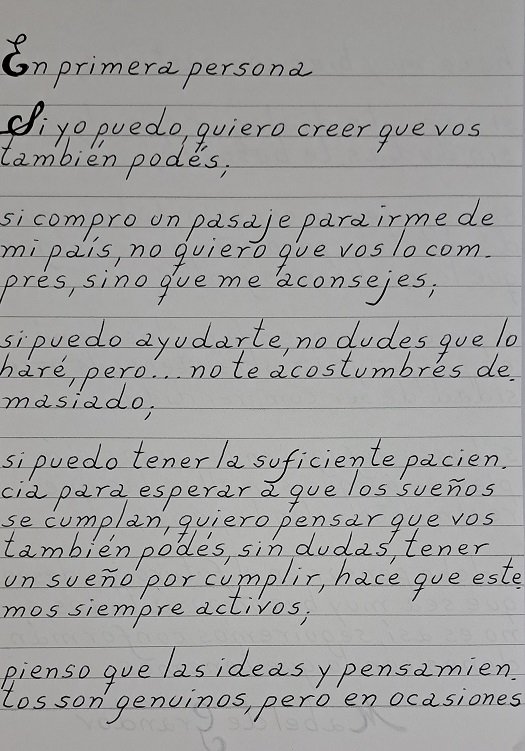 En primera persona
Si yo puedo, quiero creer que vos
también podés;
si compro un pasaje para irme de
mi país, no quiero que vos lo com.
pres, sino que me aconsejes;
si puedo ayudarte, no dudes que lo
haré, pero... no te acostumbres de.
masiado;
si puedo tener la suficiente pacien.
cia para esperar a que los sueños
se cumplan, quiero pensar que vos
también podés, sin dudas, tener
un sueño por cumplir, hace que este.
mos siempre activos;
pienso que las ideas y pensamien.
tos son genuinos, pero en ocasiones